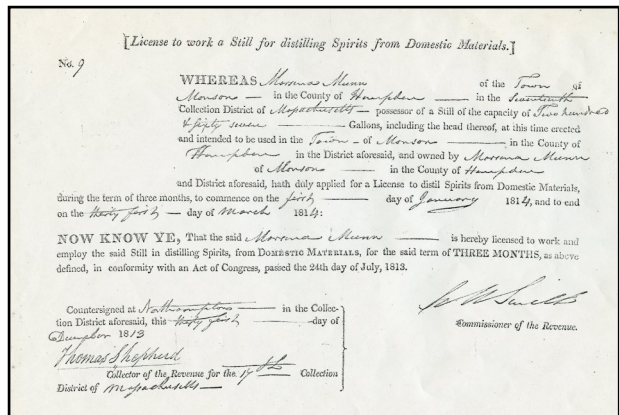 [License to work a Still for distilling Spirits from Domestic Materials.]
No. 9
WHEREAS Morsena Munn of the Town of
Monson — in the County of Hampden — in the Seventeenth
Collection District of Massachusetts — possessor of a Still of the capacity of Two hundred
& fifty seven — Gallons, including the head thereof, at this time erected
and intended to be used in the Town — of Monson — in the County of
Hampden in the District aforesaid, and owned by Morsena Munn
of Monson — in the County of Hampden
and District aforesaid, hath duly applied for a License to distil Spirits from Domestic Materials,
during the term of three months, to commence on the first — day of January 1814, and to end
on the thirty first — day of March 1814:
NOW KNOW YE, That the said Morsena Munn — is hereby licensed to work and
employ the said Still in distilling Spirits, from DOMESTIC MATERIALS, for the said term of THREE MONTHS, as above
defined, in conformity with an Act of Congress, passed the 24th day of July, 1813.
Countersigned at Northampton — in the Collec-
tion District aforesaid, this thirty first — day of
December 1813
Thomas Shepherd
Collector of the Revenue for the 17th Collection
District of Massachusetts —
Smith
Commissioner of the Revenue.